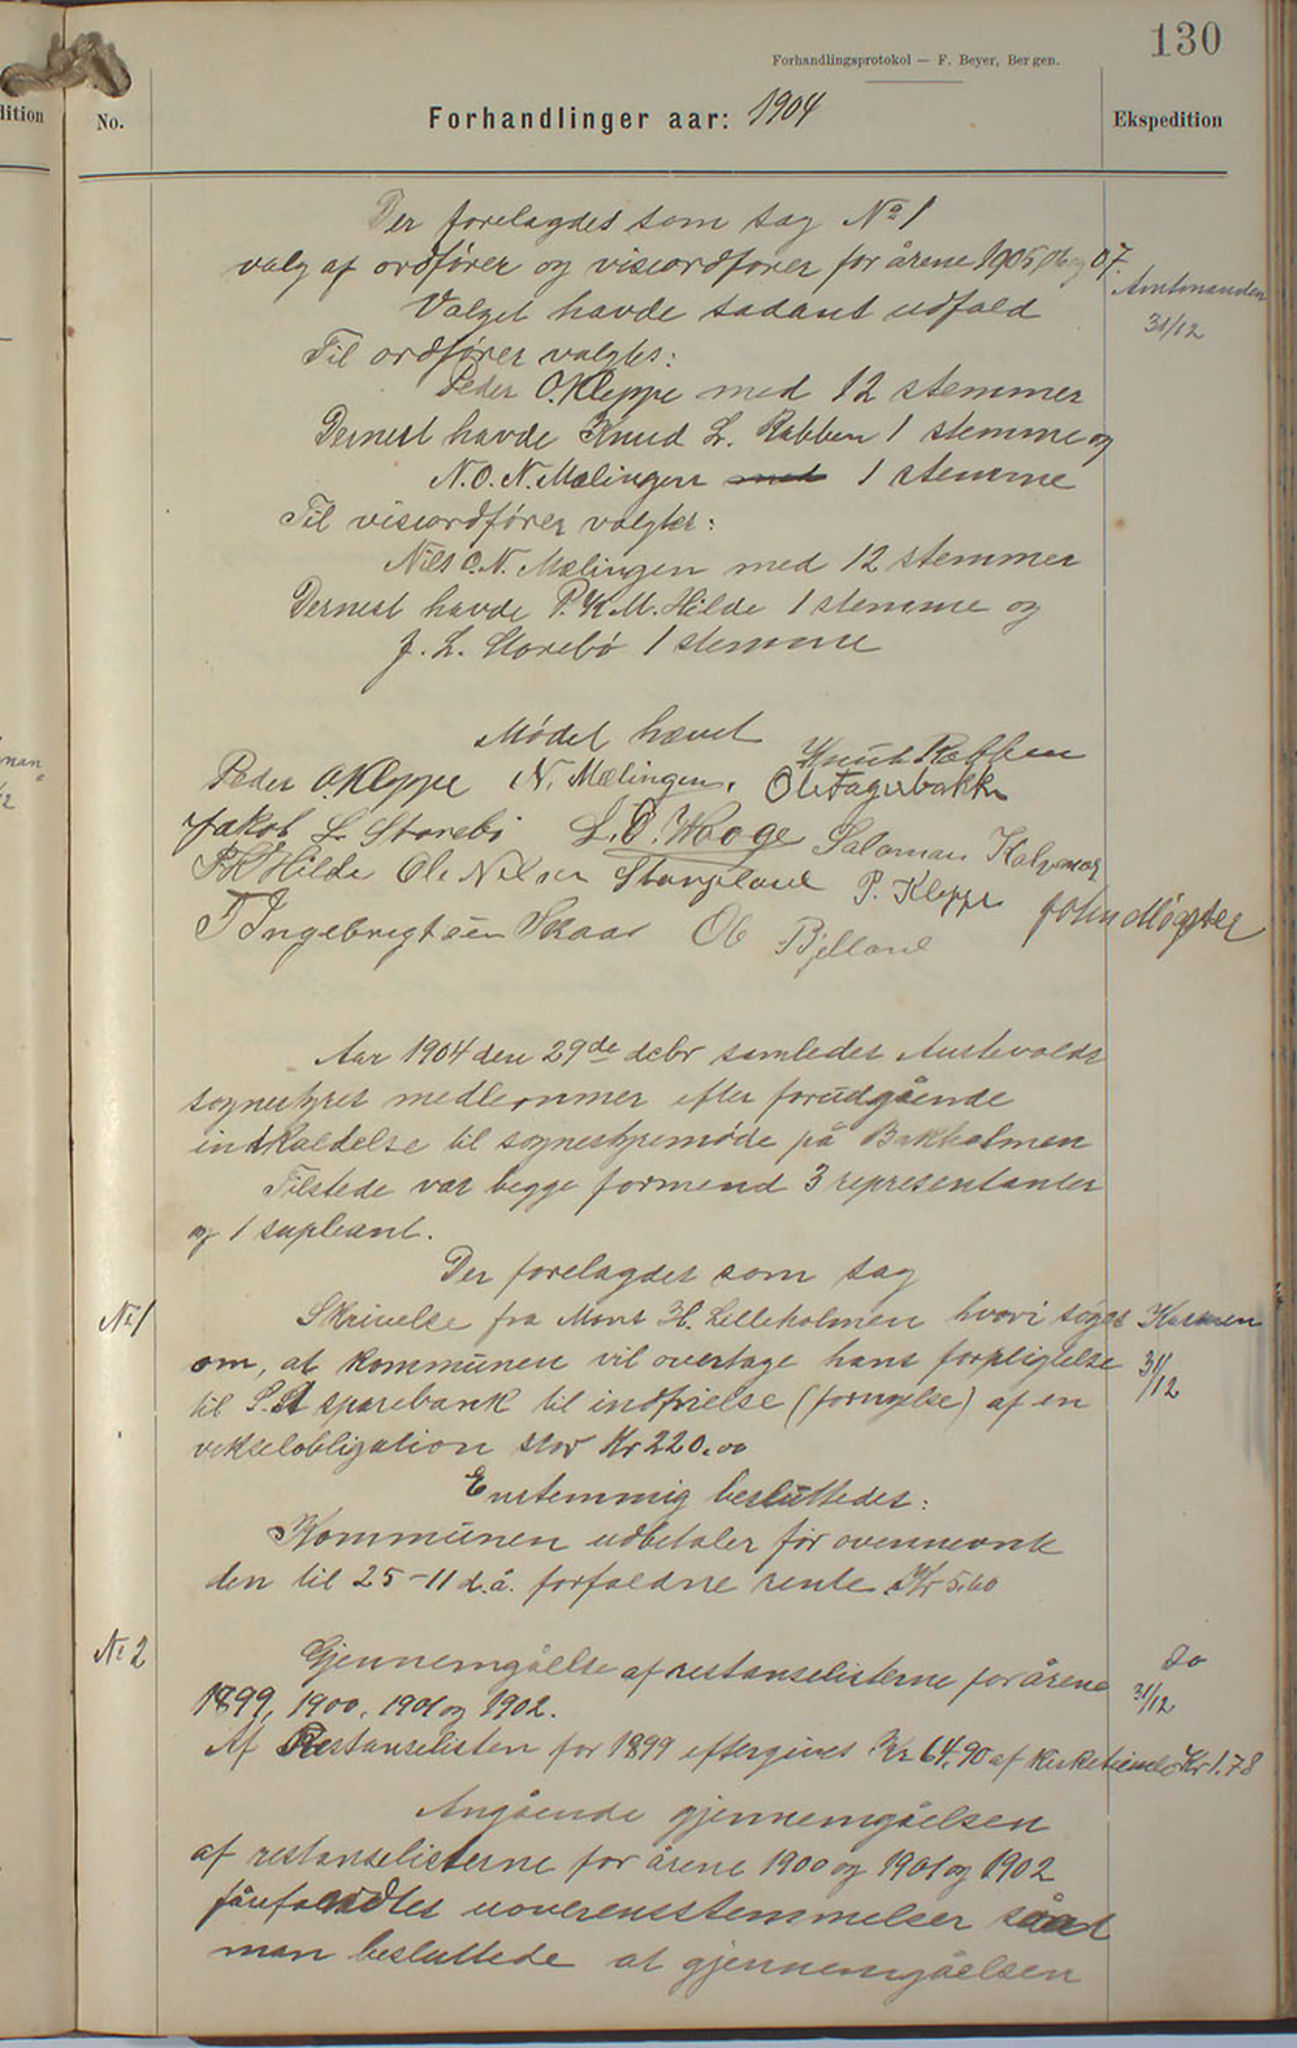 130
Forhandlingsprotokol — F. Beyer, Bergen.
dition
No.
Forhandlinger aar: 1904
Ekspedition
Der forelagdes som sag No 1
valg af ordfører og viseordfører for årene 1905 06 og 07.
Amtmanden
31/12
Valget havde sadant udfald
Til ordfører valgtes:
Peder O. Kleppe med 12 stemmer
Dernest havde Knud L. Rabben 1 stemme og
N. O. N. Mælingen med 1 stemme
Til viseordfører valgtes:
Nils O. N. Mælingen med 12 stemmer
Dernest havde P. K. M. Hilde 1 stemme og
J. L. Storebø 1 stemme
Mødet hævet
Knut Rabben
Peder O. Kleppe N. Mælingen. Ole Fagerbakke
Jakob L Storebø L. O. Waage Salomon Kalvenes
PK Hilde Ole Nilsen Stangeland P. Kleppe John Møgster
T Ingebrigtsen Skaar Ole Bjelland
Aar 1904 den 29de debr samledes Austevolds
sognestyres medlemmer efter forudgående
indkaldelse til sognestyremøde på Bakholmen
Tilstede var begge formend 3 representanter
og 1 supleant.
Der forelagdes som sag
No 1
Skrivelse fra Mons H. Lilleholmen hvori søges
Kassen
31/12
om, at kommunen vil overtage hans forpligtelse
til S. St sparebank til indfrielse (fornyelse) af en
vekselobligation stor Kr 220.00
Enstemmig besluttedes:
Kommunen udbetaler for ovennevnte
den til 25-11 d.å. forfaldne rente Kr 5.60
No 2
Gjennemgåelse af restanselisterne for årene
do
31/12
1899, 1900, 1901 og 1902.
Af Restanselisten for 1899 eftergives Kr 64.90 af kirketiende Kr 1.78
Angående gjennemgåelsen
af restanselisterne for årene 1900 og 1901 og 1902
uoverensstemmelser såat
man besluttede at gjennemgåelsen